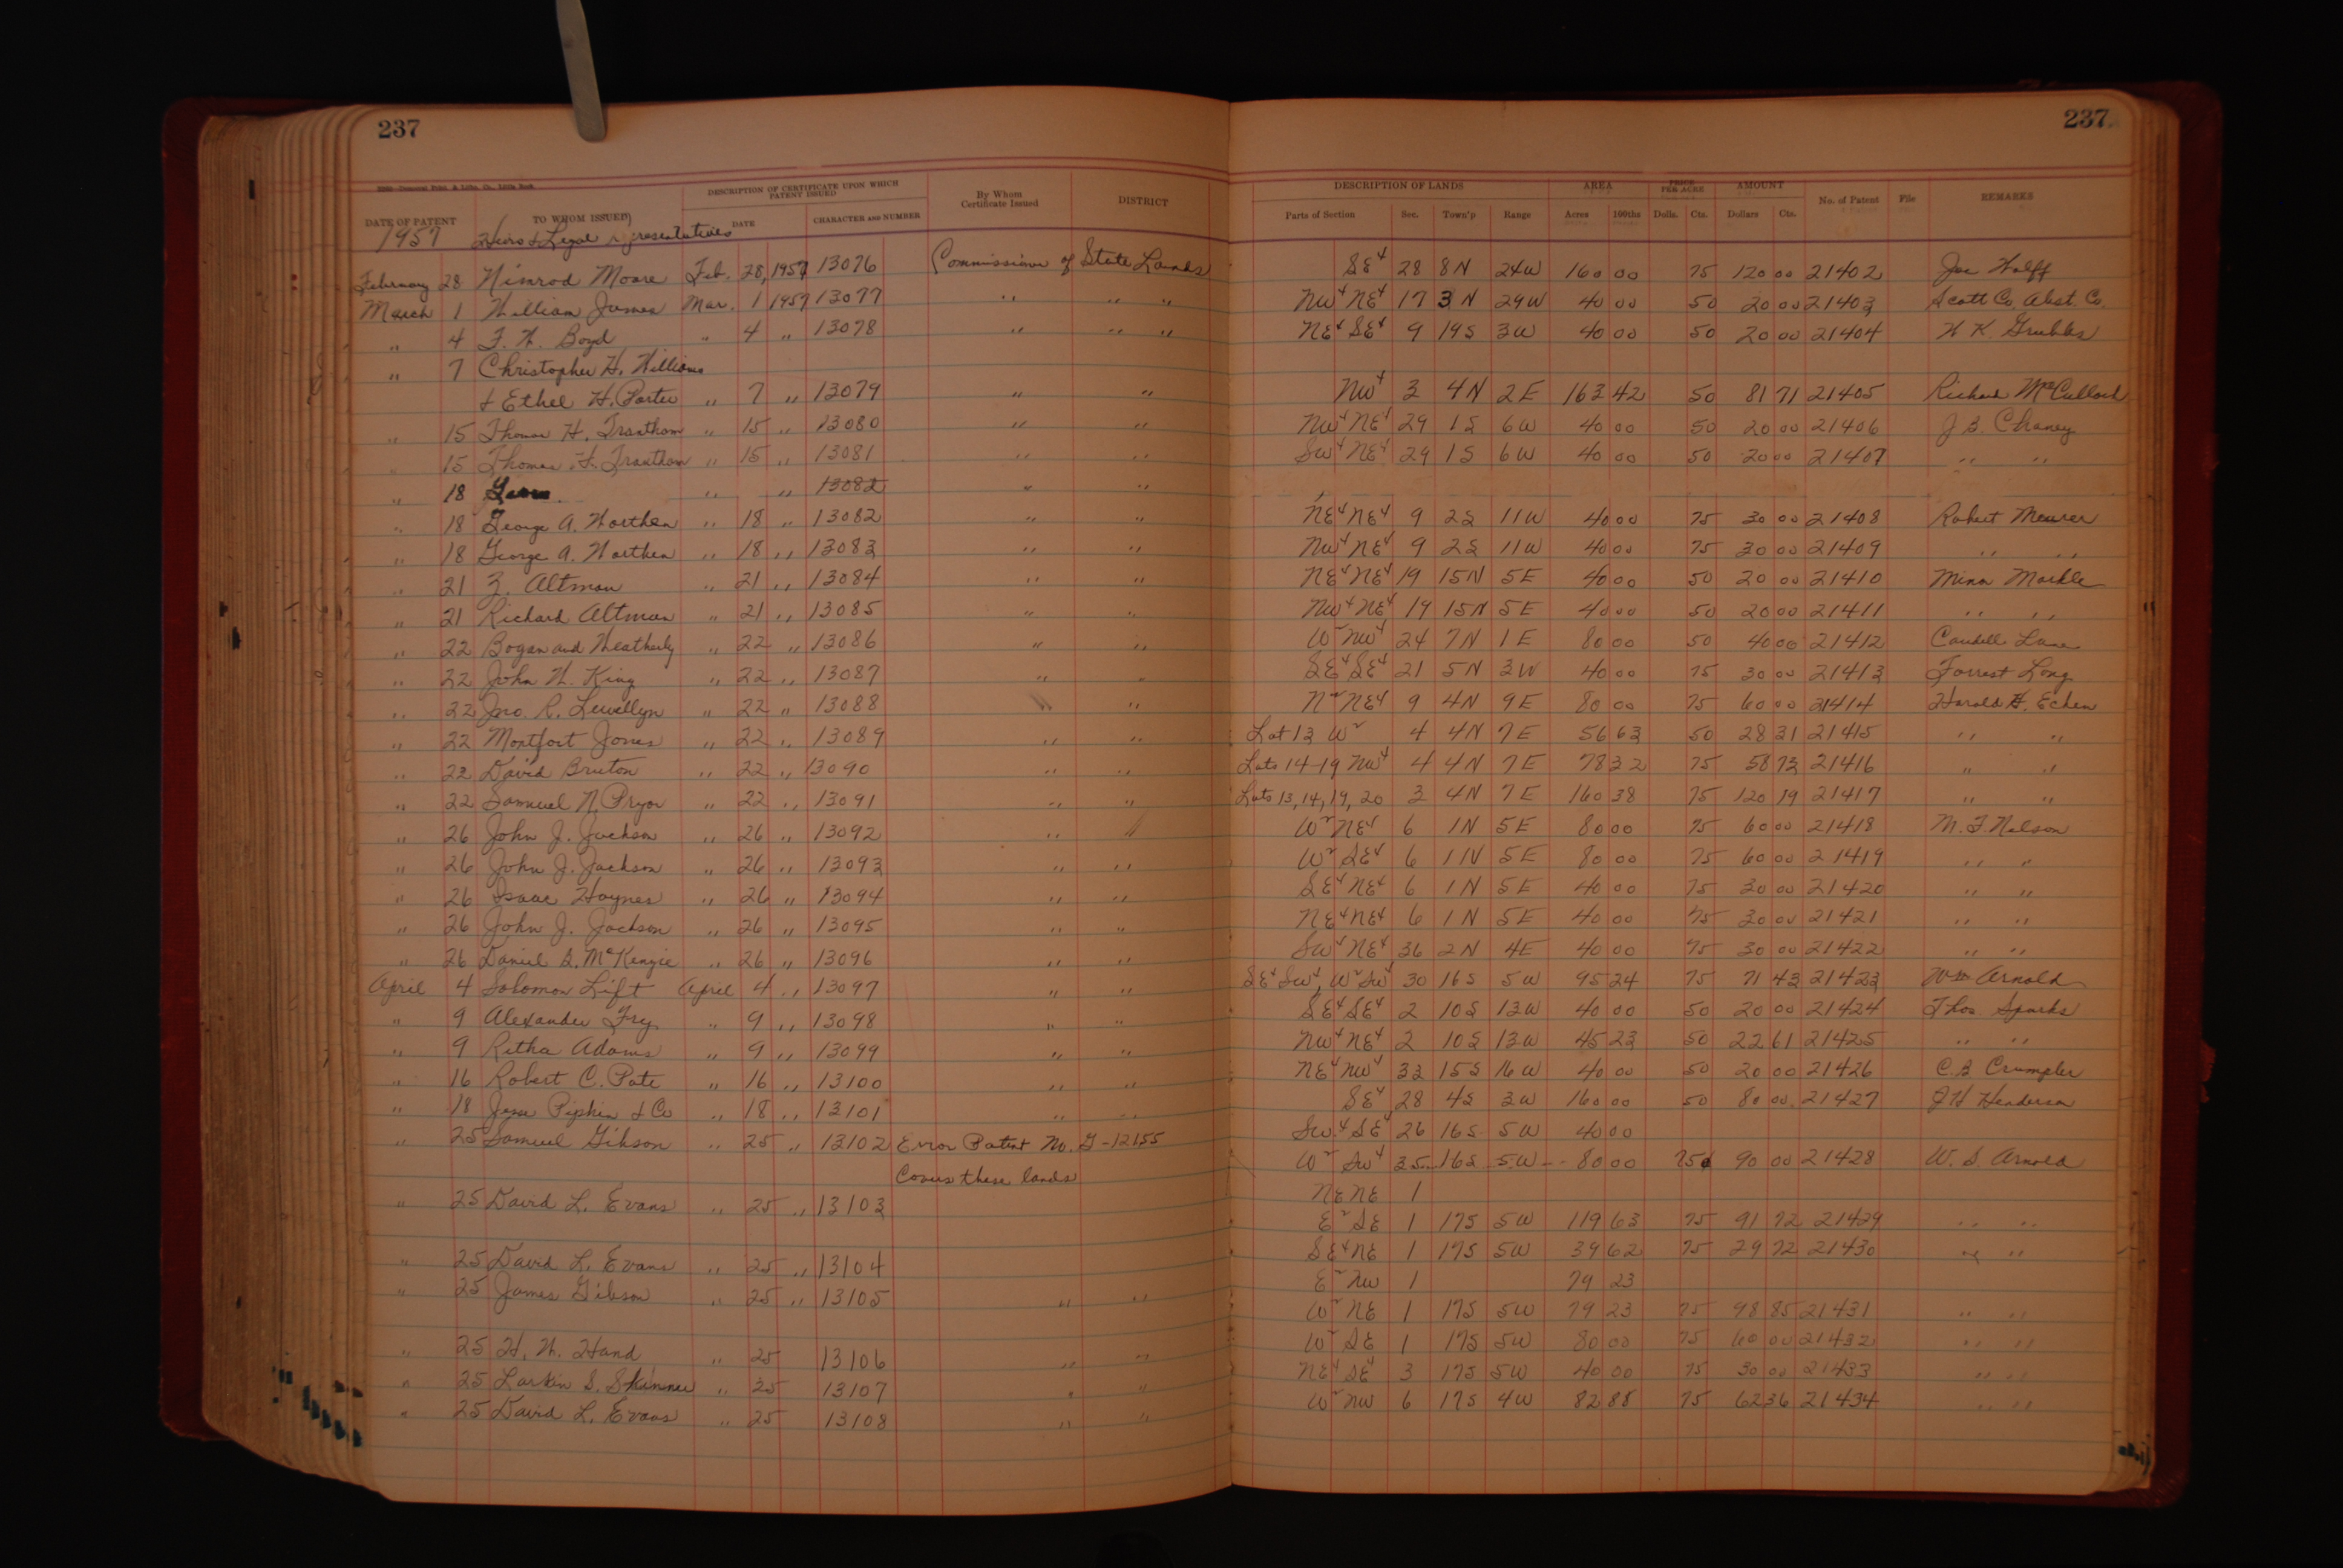 237 237
DESCRIPTION OF CERTIFICATE UPON WHICH PATENT ISSUED DESCRIPTION OF LANDS AREA PRICE PER ACRE AMOUNT
DATE OF PATENT TO WHOM ISSUED DATE CHARACTER AND NUMBER By Whom Certificate Issued DISTRICT Parts of Section Sec. Town'p Range Acres 100ths Dolls. Cts. Dollars Cts. No. of Patent File REMARKS
1957 Heirs & Legal representatives
February 28 Nimrod Moore Feb. 28, 1957 13076 Commissioner of State Lands SE4 28 8N 24W 160 00 75 120 00 21402 Joe Wolff
March 1 William James Mar. 1 1957 13077 " " " NW4 NE4 17 3N 29W 40 00 50 20 00 21403 Scott Co. Abst. Co.
" 4 F. W. Boyd " 4 " 13078 " " " NE4 SE4 9 19S 3W 40 00 50 20 00 21404 W K. Grubbs
" 7 Christopher H. Williams
& Ethel H. Porter " 7 " 13079 " " NW4 3 4N 2E 163 42 50 81 71 21405 Richard McCulloch
" 15 Thomas H. Trantham " 15 " 13080 " " NW4 NE4 29 1S 6W 40 00 50 20 00 21406 J B. Chaney
" 15 Thomas H. Trantham " 15 " 13081 " " SW4 NE4 29 1S 6W 40 00 50 20 00 21407 " "
" 18 " " 13082 " "
" 18 George A. Worthen " 18 " 13082 " " NE4 NE4 9 2S 11W 40 00 75 30 00 21408 Robert Meurer
" 18 George A. Worthen " 18 " 13083 " " NW4 NE4 9 2S 11W 40 00 75 30 00 21409 " "
" 21 Z. Altman " 21 " 13084 " " NE4 NE4 19 15N 5E 40 00 50 20 00 21410 Mina Markle
" 21 Richard Altman " 21 " 13085 " " NW4 NE4 19 15N 5E 40 00 50 20 00 21411 " "
" 22 Bogan and Weatherly " 22 " 13086 " " W2 NW4 24 7N 1E 80 00 50 40 00 21412 Caudell Lane
" 22 John W. King " 22 " 13087 " " SE4 SE4 21 5N 3W 40 00 75 30 00 21413 Forrest Long
" 22 Jno. R. Lewellyn " 22 " 13088 " " N2 NE4 9 4N 9E 80 00 75 60 00 21414 Harold H. Echen
" 22 Montfort Jones " 22 " 13089 " " Lot 13 W2 4 4N 7E 56 63 50 28 31 21415 " "
" 22 David Bruton " 22 " 13090 " " Lots 14-19 NW4 4 4N 7E 78 32 75 58 73 21416 " "
" 22 Samuel N. Pryor " 22 " 13091 " " Lots 13, 14, 19, 20 3 4N 7E 160 38 75 120 19 21417 " "
" 26 John J. Jackson " 26 " 13092 " " W2 NE4 6 1N 5E 80 00 75 60 00 21418 M. F. Nelson
" 26 John J. Jackson " 26 " 13093 " " W2 SE4 6 1N 5E 80 00 75 60 00 21419 " "
" 26 Isaac Haynes " 26 " 13094 " " SE4 NE4 6 1N 5E 40 00 75 30 00 21420 " "
" 26 John J. Jackson " 26 " 13095 " " NE4 NE4 6 1N 5E 40 00 75 30 00 21421 " "
" 26 Daniel B. McKenzie " 26 " 13096 " " SW4 NE4 36 2N 4E 40 00 75 30 00 21422 " "
April 4 Solomon Lift April 4 " 13097 " " SE4 SW4, W2 SW4 30 16S 5W 95 24 75 71 43 21423 Wm Arnold
" 9 Alexander Fry " 9 " 13098 " " SE4 SE4 2 10S 13W 40 00 50 20 00 21424 Thos Sparks
" 9 Retha Adams " 9 " 13099 " " NW4 NE4 2 10S 13W 45 23 50 22 61 21425 " "
" 16 Robert C. Pate " 16 " 13100 " " NE4 NW4 33 15S 16W 40 00 50 20 00 21426 C. B Crumpler
" 18 Jesse Pipkin & Co " 18 " 13101 " " SE4 28 4S 3W 160 00 50 80 00 21427 J H Henderson
" 25 Samuel Gibson " 25 " 13102 Error Patent No. G-12155 SW4 SE4 26 16S 5W 40 00
Covers these lands W2 SW4 35 16S 5W 80 00 75 90 00 21428 W. S. Arnold
NE NE 1
" 25 David L. Evans " 25 " 13103 E2 SE 1 17S 5W 119 63 75 91 72 21429 " "
" 25 David L. Evans " 25 " 13104 SE4 NE 1 17S 5W 39 62 75 29 72 21430 " "
E2 NW 1 79 23
" 25 James Gibson " 25 " 13105 " " W2 NE 1 17S 5W 79 23 75 98 85 21431 " "
" 25 H. W. Hand " 25 13106 " " W2 SE 1 17S 5W 80 00 75 60 00 21432 " "
" 25 Larkin S. Skinner " 25 13107 " " NE4 SE4 3 17S 5W 40 00 75 30 00 21433 " "
" 25 David L. Evans " 25 13108 " " W2 NW 6 17S 4W 82 88 75 62 36 21434 " "